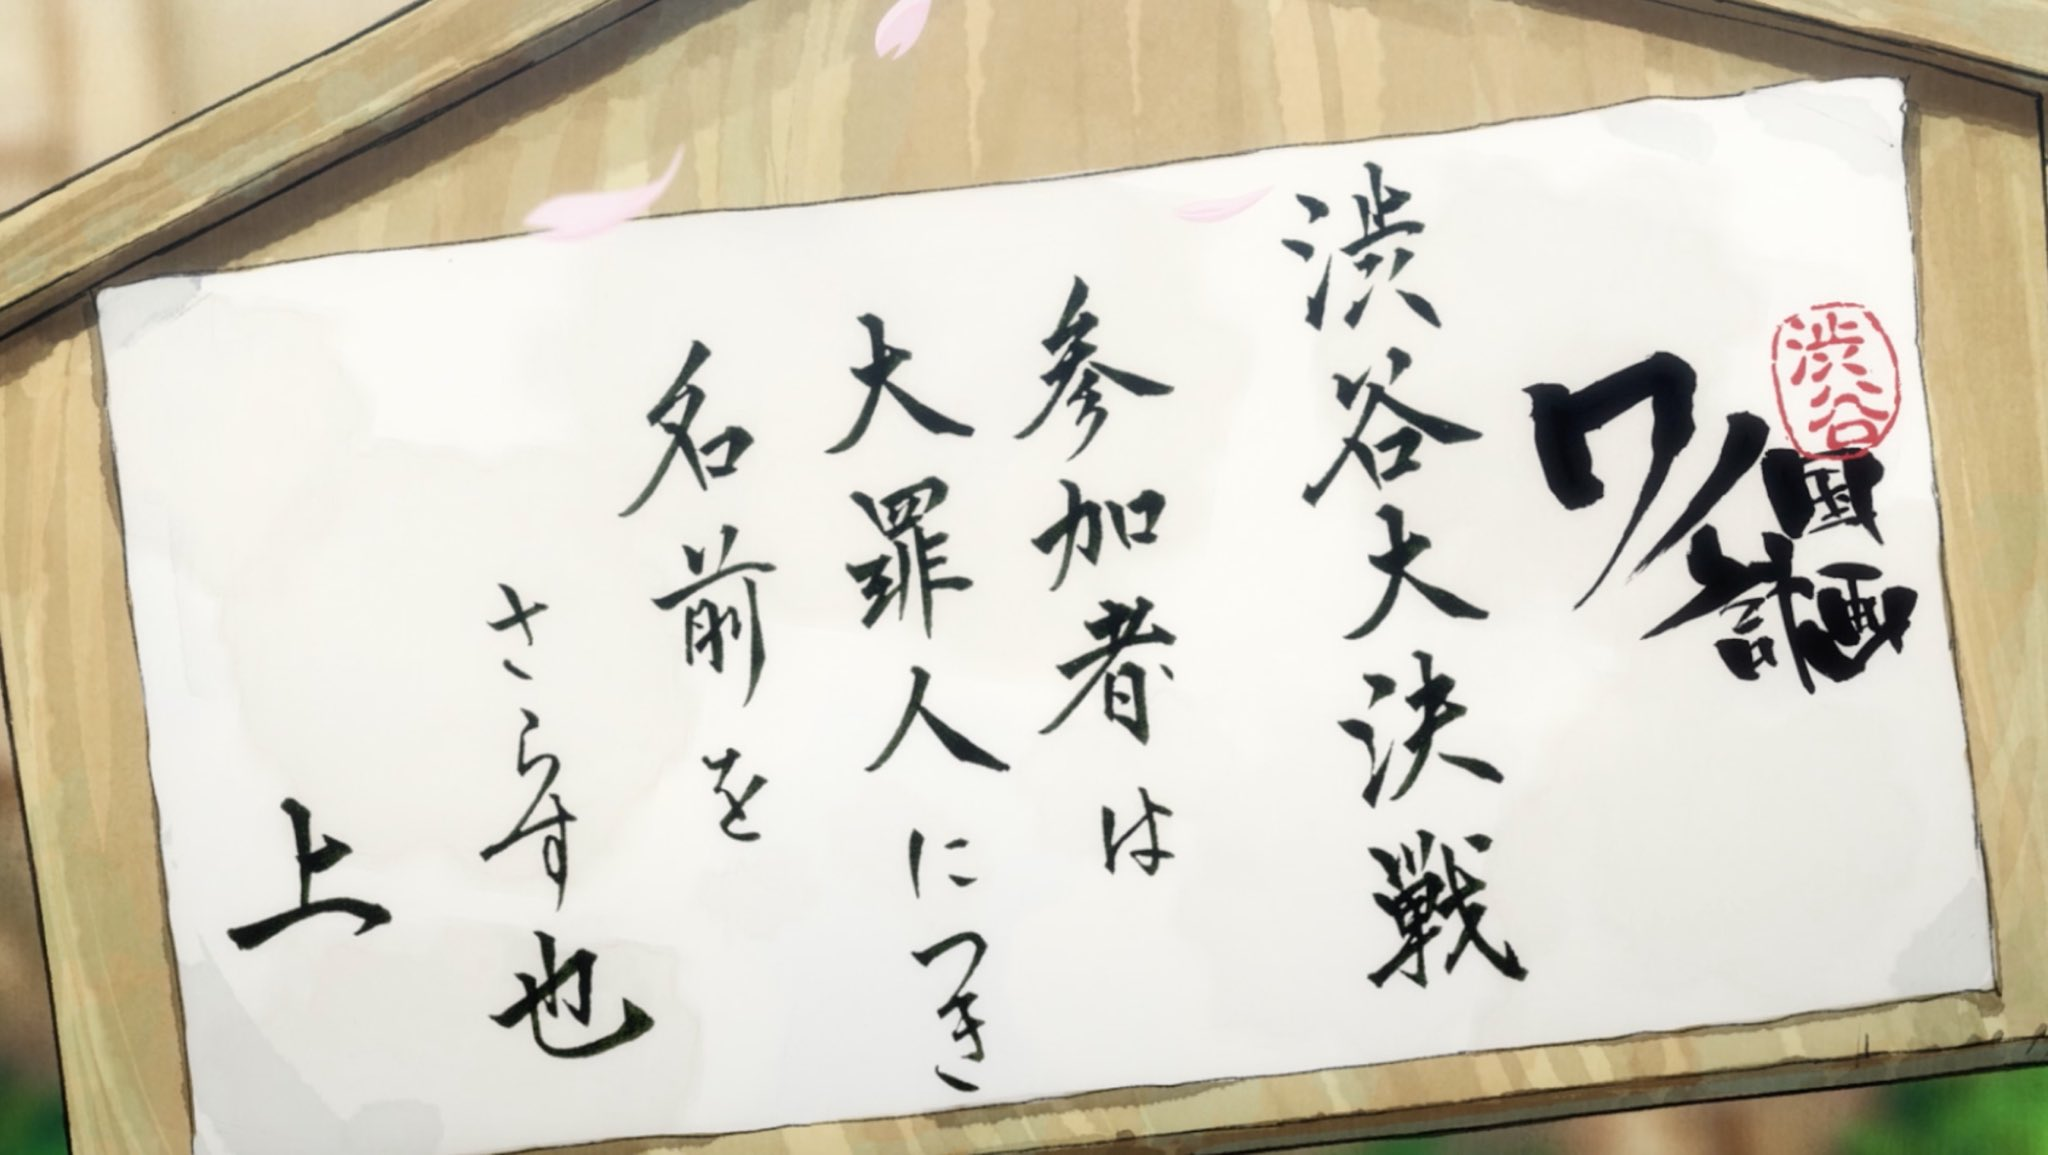 渋谷
ワノ国計画
渋谷大決戦
参加者は
大罪人につき
名前を
さらす也
上